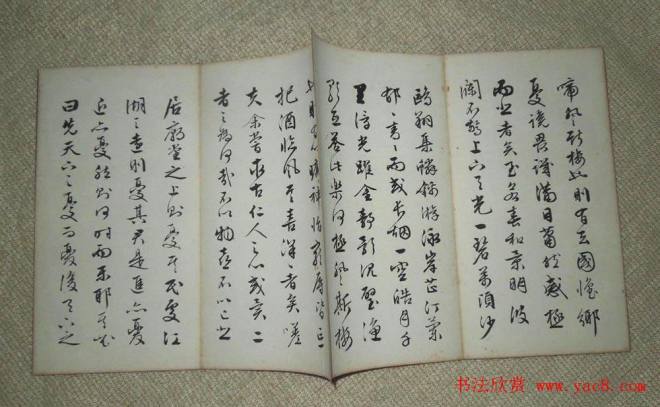 啼登斯樓也則有去國懷鄉
憂讒畏譏滿目蕭然感極
而悲者矣至若春和景明波
瀾不驚上下天光一碧萬頃沙
鷗翔集錦鱗游泳岸芷汀蘭
郁郁青青而或長煙一空皓月千
里浮光躍金靜影沉璧漁
歌互答此樂何極登斯樓
也則有心曠神怡寵辱皆忘
把酒臨風其喜洋洋者矣嗟
夫余嘗求古仁人之心或異二
者之為何哉不以物喜不以己悲
居廟堂之上則憂其民處江
湖之遠則憂其君是進亦憂
退亦憂然則何時而樂耶其必
曰先天下之憂而憂後天下之
书法欣赏 www.yac8.com